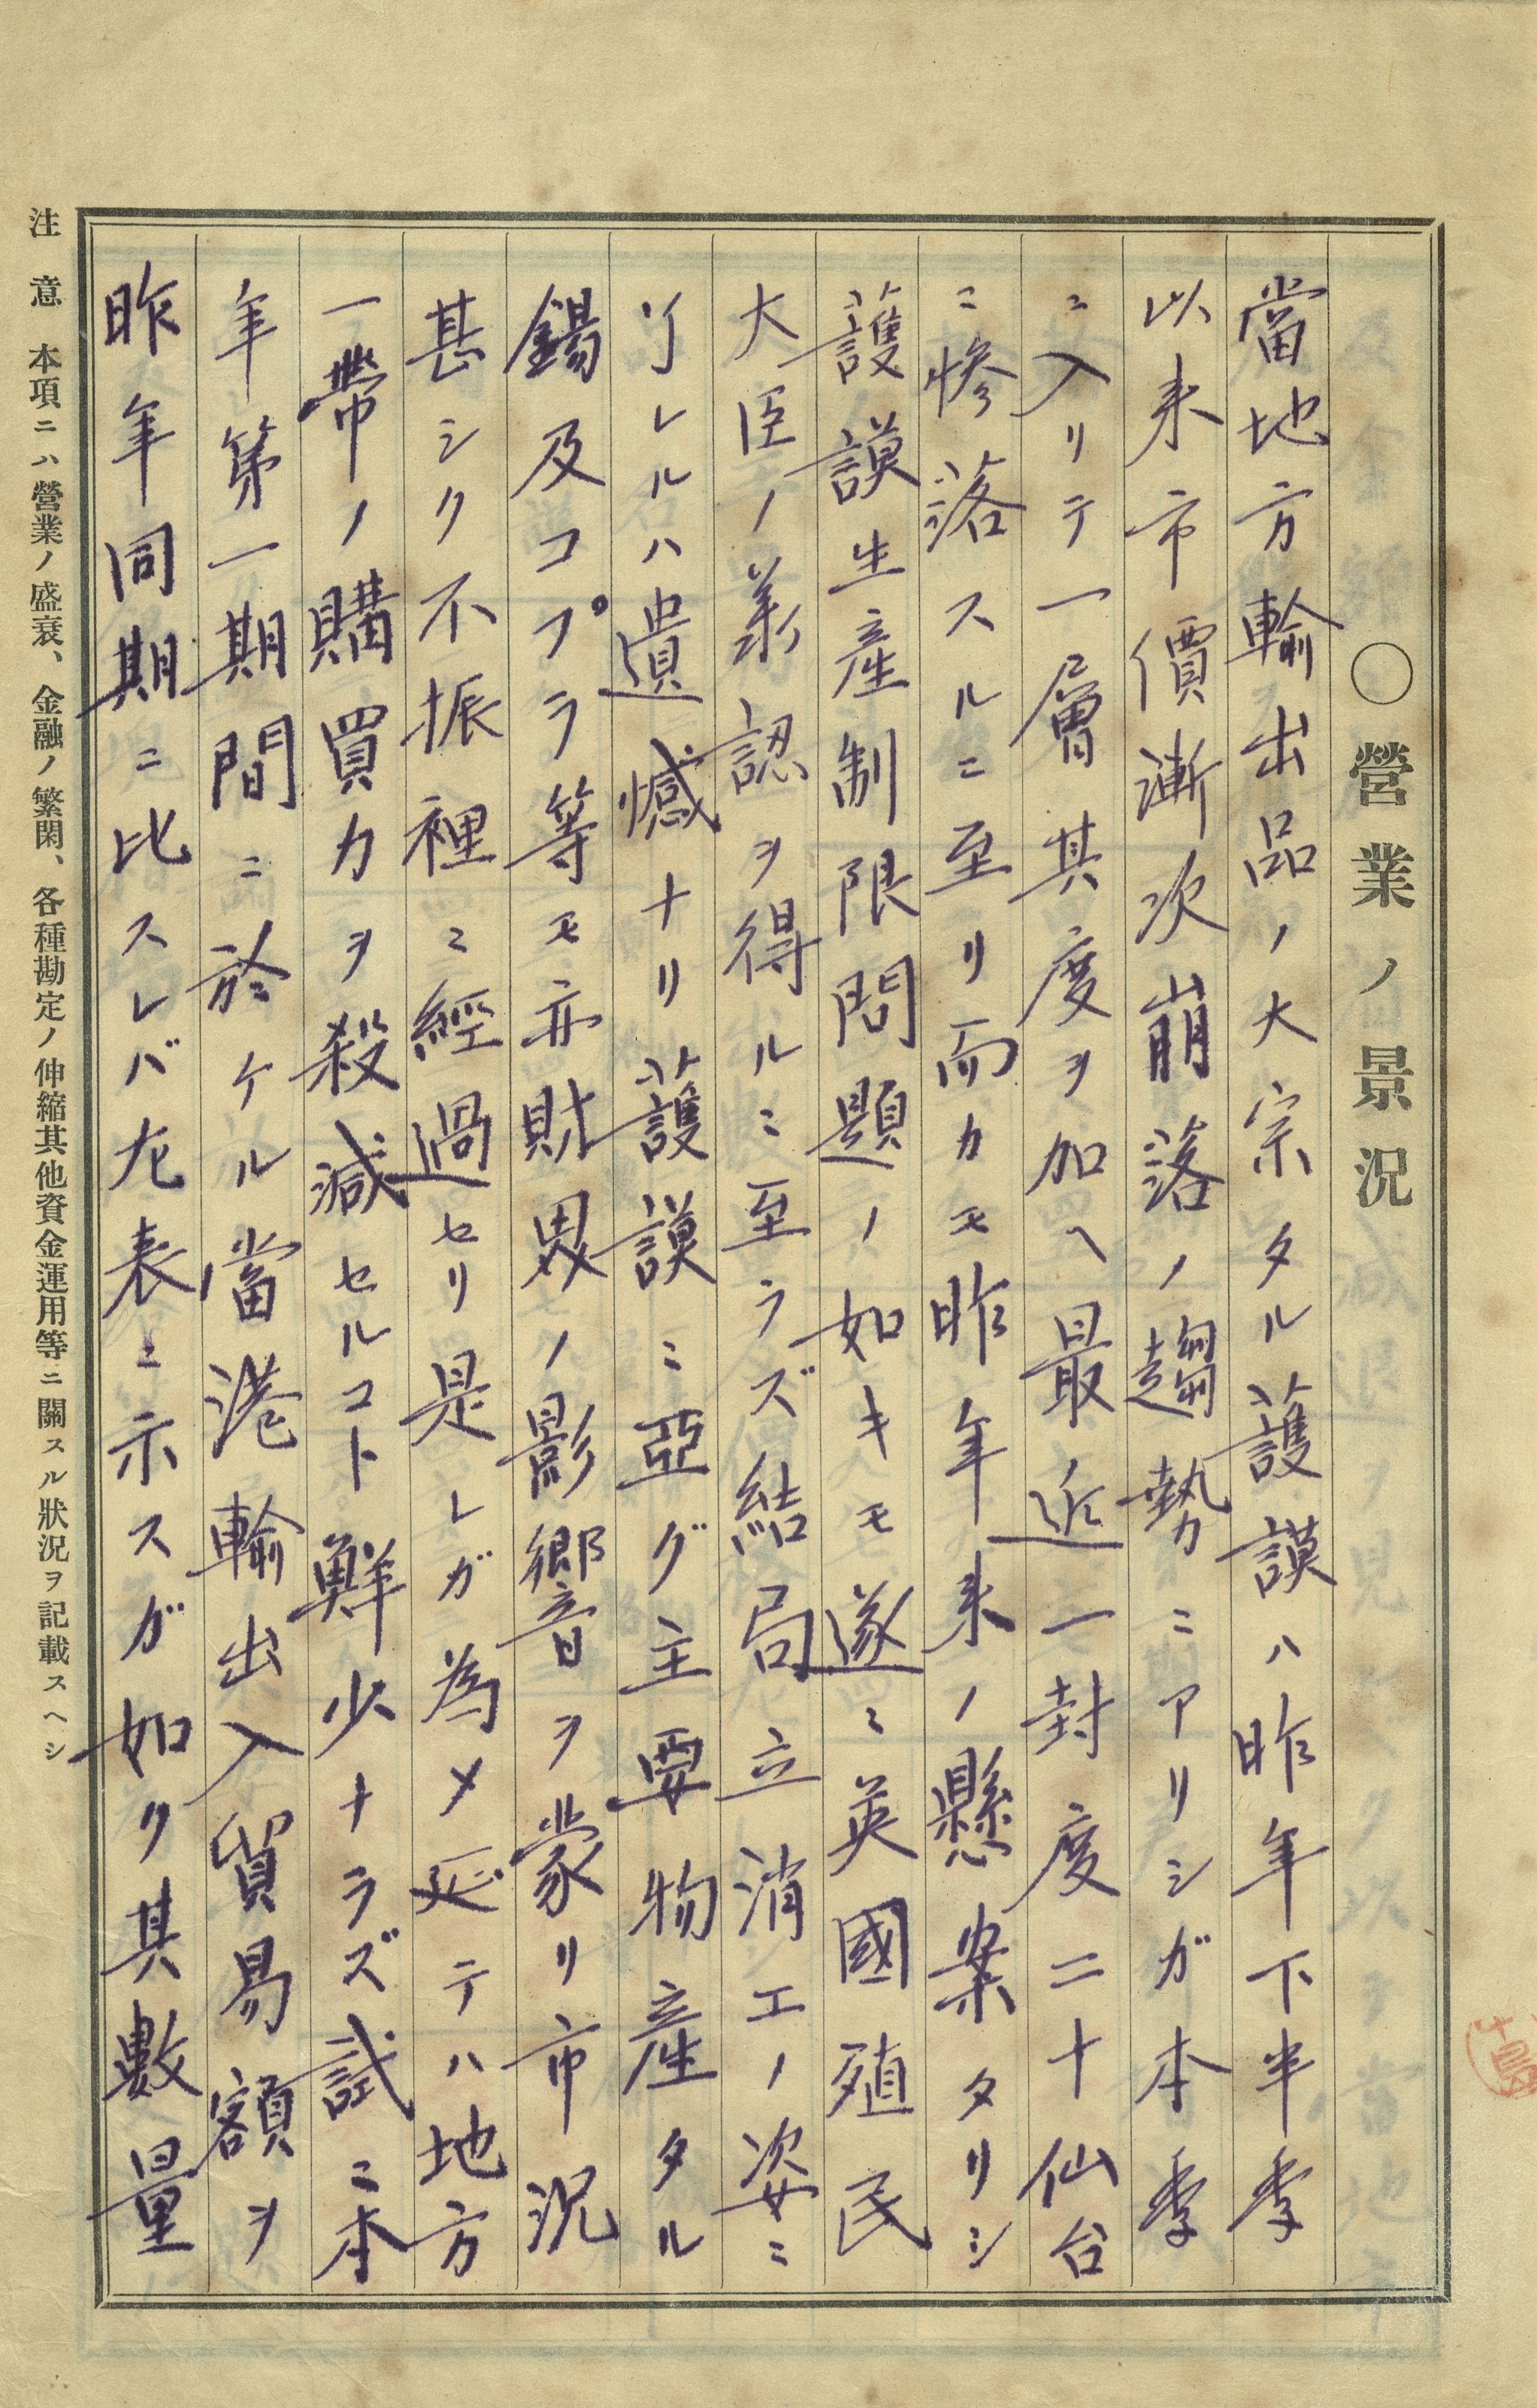 〇營業ノ景況
當地方輸出品ノ大宗タル護謨ハ昨年下半季
以来市價漸次崩落ノ趨勢ニアリシガ本季
ニ入リテ一層其度ヲ加ヘ最近一封度二十仙台
ニ惨落スルニ至リ而カモ昨年来ノ懸案タリシ
護謨生産制限問題ノ如キモ遂ニ英國殖民
大臣ノ承認ヲ得ルニ至ラズ結局立消エノ姿ニ
リレルハ遺憾ナリ護謨ニ亞グ主要物産タル
錫及コプラ等モ亦財界ノ影響ヲ蒙リ市況
甚シク不振裡ニ經過セリ是レガ為メ延テハ地方
一帶ノ購買力ヲ殺減セルコト鮮少ナラズ試ニ本
年第一期間ニ於ケル當港輸出入貿易額ヲ
昨年同期ニ比スレバ左表ニ示スガ如ク其數量
注意 本項ニハ營業ノ盛衰、金融ノ繁閑、各種勘定ノ伸縮其他資金運用等ニ關スル狀況ヲ記載スヘシ